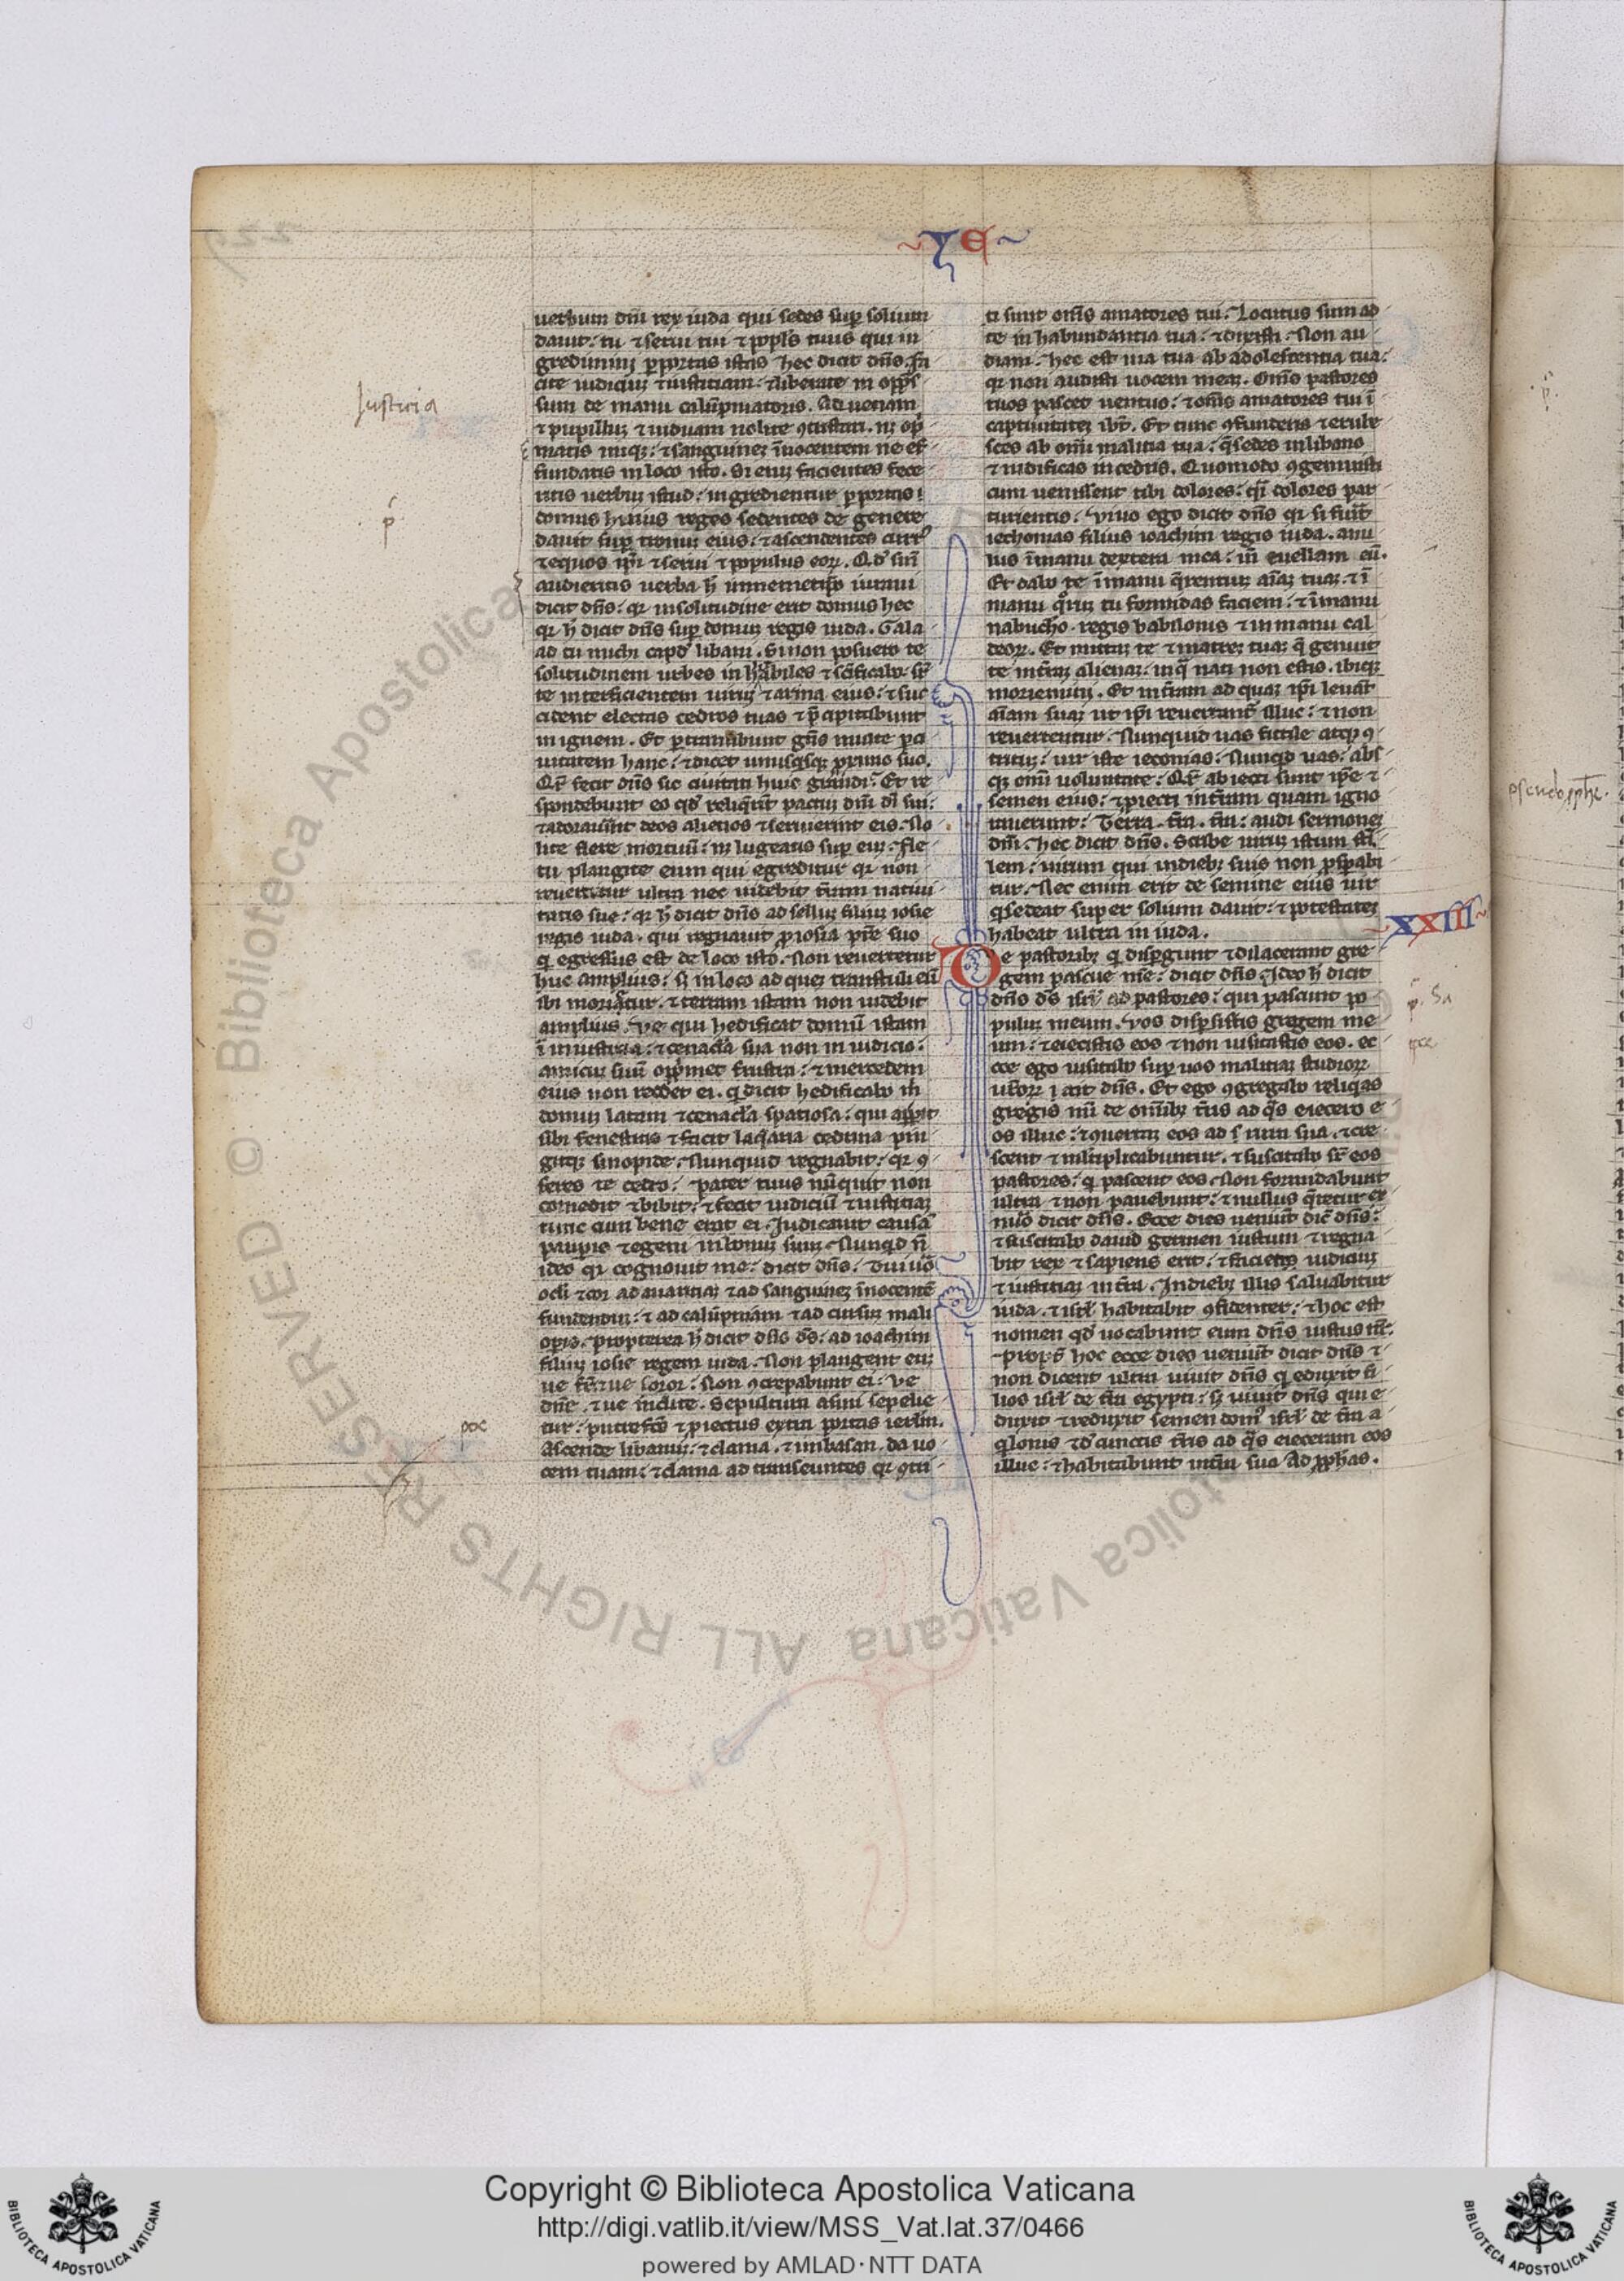 YE
uerbum dñi rex iuda qui sedes sup solium
dauit: tu ⁊ serui tui ⁊ ppl's tuus qui in
gredimini p portas istas. hec dicit dñs. fa
cite iudiciuʒ ⁊ iustitiam: ⁊ liberate ui opp̃s
sum de manu calũpniatoris. Aduenam
⁊ pupilluʒ ⁊ uiduam nolite ꝯtristari. nʒ op̃
matis iniqʒ: ⁊ sanguineʒ ĩnocentem ne ef
fundatis in loco isto. Si eniʒ facientes fece
ritis uerbuʒ istud: ingredientur p portas
domus huius reges sedentes de genere
dauit sup tronuʒ eius: ⁊ ascendentes curr᷒
⁊ equos ip̃i ⁊ serui ⁊ populus eoꝝ. Qd' si ñ
audieritis uerba h̃ in memetip̃o iuraui
dicit dñs: qꝛ in solitudine erit domus hec
qꝛ h̃ dicit dñs sup domuʒ regis iuda. Gala
ad tu michi capd' libani. Si non posuero te
solitudinem urbes inhabiles ⁊ sc̃ificabo. sr̃
te interficientem uiruʒ ⁊ arma eius: ⁊ suc
cident electas cedros tuas ⁊ p̃cipitabunt
in ignem. Et ptransibunt gñs multe p ci
uitatem hanc: ⁊ dicet unusqsqʒ primo suo.
Qr̃ fecit dñs sic ciuitati huic grandi? Et re
spondebunt eo qd' reliq̃rũt pactuʒ dñi di sui:
⁊ adorauẽnt deos alienos ⁊ seruierint eis. No
lite flere mortuũ: nʒ lugeatis sup euʒ. fle
tu plangite eum qui egreditur qꝛ non
reuertetur ultra nec uidebit t̃ram natiui
tatis sue: qꝛ h̃ dicit dñs ad selluʒ filiuʒ iosie
regis iuda. qui regnauit p iosia pr̃e suo
q egressus est de loco isto. Non reuertetur
huc amplius: sʒ in loco ad queʒ transtuli eũ
ibi morietur. ⁊ terram istam non uidebit
amplius. Ve qui hedificat domũ istam
ĩ iniustitia: ⁊ cenacl'a sua non in iudicio:
amicuʒ suũ opp̃met frustra: ⁊ mercedem
eius non reddet ei. q dicit hedificabo m̃
domuʒ latam ⁊ cenacl'a spatiosa: qui apit
sibi fenestras ⁊ facit laq̃aria cedrina pin
gitqʒ sinopide. Nunquid regnabit: qꝛ ꝯ
feres te cedro: pater tuus nũquit non
comedit ⁊ bibit: ⁊ fecit iudiciũ ⁊ iustitiaʒ
tunc cum bene erat ei. Judicauit causã
paupis ⁊ egeni in bonuʒ suuʒ. Nunqd ñ
ideo qꝛ cognouit me: dicit dñs. Tui uo
oc'li ⁊ cor ad auaritiaʒ ⁊ ad sanguineʒ ĩnocentẽ
fundenduʒ: ⁊ ad calũpniam ⁊ ad cursuʒ mali
opis. Propterea h̃ dicit dñs ds̃: ad ioachim
filiuʒ iosie regem iuda. Non plangent euʒ
ue fr̃ ⁊ ue soror: Non ꝯcrepabunt ei: ve
dñe. ⁊ ue inclite. Sepultura asini sepelie
tur: putrefcs̃ ⁊ piectus extra portas ierlm̃.
Ascende libanuʒ: ⁊ clama. ⁊ in basan. da uo
cem tuam: ⁊ clama ad transeuntes qꝛ ꝯtri
ti sunt om̃s amatores tui. Locutus sum ad
te in habundantia tua: ⁊ dixisti. Non au
diam. hec est uia tua ab adolescentia tua:
qꝛ non audisti uocem meaʒ. Om̃s pastores
tuos pascet uentus: ⁊ om̃s amatores tui ĩ
captiuitateʒ ibt̃. Et tunc ꝯfunderis ⁊ erube
sces ab omi malitia tua: q̃ sedes in libano
⁊ nidificas in cedris. Quomodo ꝯgemuisti
cum uenissent tibi dolores: q̃i dolores par
turientis: Viuo ego dicit dñs qꝛ si fuit̃
iechonias filius ioachim regis iuda. anu
lus ĩ manu dextera mea: in̄ euellam eũ.
Et dabo te ĩ manu q̃rentiuʒ aĩaʒ tuaʒ. ⁊ ĩ
manu qꝛ̊uʒ tu formidas faciem: ⁊ ĩ manu
nabucho. regis babilonis ⁊ in manu cal
deoꝝ. Et mittaʒ te ⁊ matreʒ tuaʒ q̃ genuit
te in t̃raʒ alienaʒ. in q̃ nati non estis. ibiqʒ
moriemini. Et in t̃ram ad quaʒ ip̃i leuãt
aĩam suaʒ ut ip̃i reuertant᷒ illuc: ⁊ non
reuertentur. Nunquid uas fictile atqʒ ꝯ
tritũ: uir iste ieconias: Nunqd uas: abs
qʒ omi uoluntate: Qr̃ abiecti sunt ip̃e ⁊
semen eius: ⁊ piecti in t̃ram quam igno
rauerunt: Terra. t̃ra. t̃ra: audi sermoneʒ
dñi. hec dicit dñs. Scribe uiruʒ istum st̃i
lem: uirum qui in diebʒ suis non pspabi
tur. Nec enim erit de semine eius uir
q sedeat super solium dauit: ⁊ potestateʒ
habeat ultra in iuda.
Ve pastoribʒ q dispgunt ⁊ dilacerant gre
gem pascue mẽ: dicit dñs. Ideo h̃ dicit
dñs ds̃ isrl' ad pastores: qui pascunt po
puluʒ meum. Vos dispsistis gregem me
um: ⁊ eiecistis eos ⁊ non uisitastis eos. ec
cce ego uisitabo sup uos malitiaʒ studioꝝ
ur̃oꝝ: ait dñs. Et ego ꝯgregabo reliqas
gregis mei de omibʒ t̃ris ad q̃s eiecero e
os illuc: ⁊ ꝯuertaʒ eos ad rura sua. ⁊ cre
scent ⁊ mltiplicabuntur. ⁊ suscitabo sr̃ eos
pastores: q pascent eos. Non formidabunt
ultra ⁊ non pauebunt: ⁊ nullus q̃retur ex
nũo dicit dñs. Ecce dies ueniũt dic̃ dñs:
⁊ suscitabo dauid germen iustum ⁊ regna
bit rex ⁊ sapiens erit: ⁊ facietqʒ iudiciuʒ
⁊ iustitiaʒ in t̃ra. In diebʒ illis saluabitur
iuda. ⁊ isrl' habitabit ꝯfidenter: ⁊ hoc est
nomen qd' uocabunt eum dñs iustus nr̃.
Propt̃ hoc ecce dies ueniũt dicit dñs ⁊
non dicent ultra uiuit dñs q eduxit fi
lios isrl' de t̃ra egypti: sʒ uiuit dñs qui e
duxit ⁊ reduxit semen dom᷒ isrl' de t̃ra a
q̃lonis ⁊ d' cunctis t̃ris ad q̃s eieceram eos
illuc: ⁊ habitabunt in t̃ra sua. Ad ꝓph̃as.
XXIII
Justicia
p̃
Copyright © Biblioteca Apostolica Vaticana
http://digi.vatlib.it/view/MSS_Vat.lat.37/0466
powered by AMLAD·NTT DATA
© Biblioteca Apostolica Vaticana ALL RIGHTS RESERVED
BIBLIOTECA APOSTOLICA VATICANA
BIBLIOTECA APOSTOLICA VATICANA